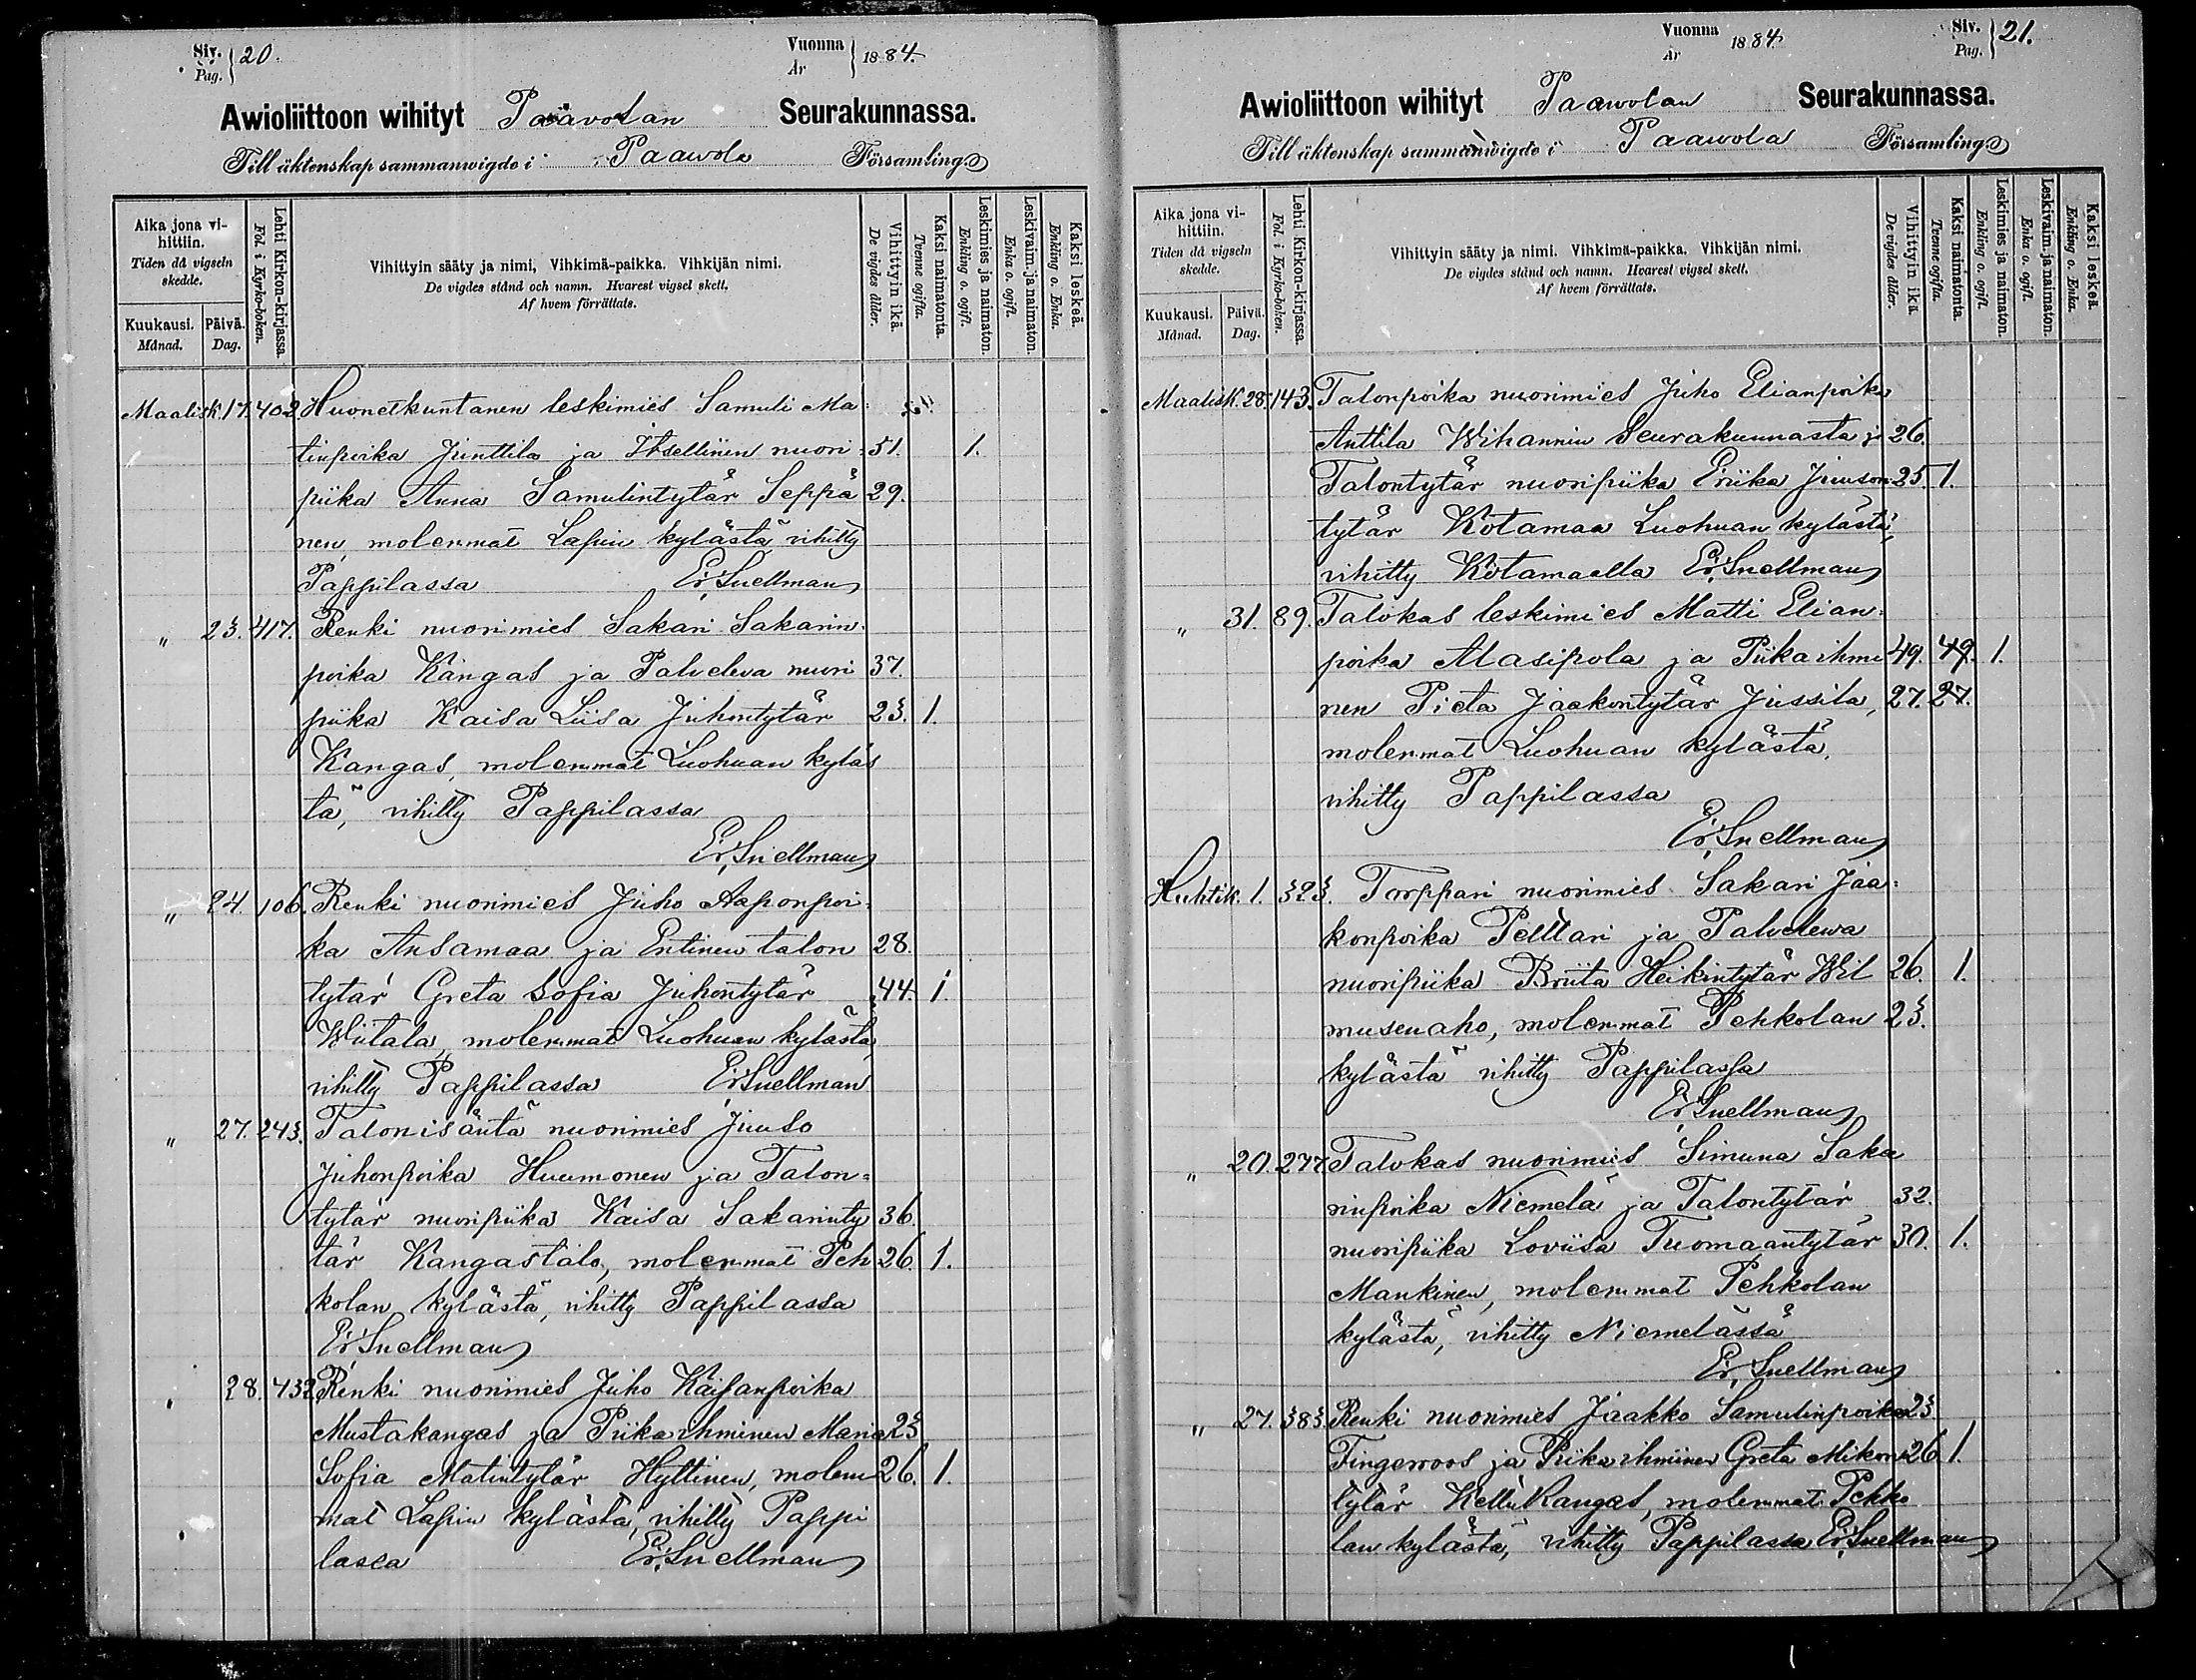 Siv. 20.
Pag.
Vuonna 1884.
År
Awioliittoon wihityt Paavolan Seurakunnassa.
Till äktenskap sammanwigde i Paawola Församling
Aika jona vi-
hittiin.
Tiden då vigseln
skedde.
Kuukausi.
Månad.
Päivä.
Dag.
Lehti Kirkon-kirjassa.
Fol. i Kyrko-boken.
Vihittyin sääty ja nimi, Vihkimä-paikka. Vihkijän nimi.
De vigdes stånd och namn. Hvarest vigsel skett.
Af hvem förrättats.
Vihittyin ikä.
De vigdes ålder.
Kaksi naimatonta.
Tvenne ogifta.
Leskimies ja naimaton.
Enkling o. ogift.
Leskivaim. ja naimaton.
Enka o. ogift.
Kaksi leskeä.
Enkling o. Enka.
Maalisk. 17. 402 Huonetkuntanen leskimies Samuli Ma
tinpoika Junttila ja Itsellinen nuori 51. 1.
piika Anna Samulintytär Seppä 29.
nen, molemmat Lapin kylästä vihitty
Pappilassa Er. Snellman
" 23. 417. Renki nuorimies Sakari Sakarin
poika Kangas ja Palveleva nuori 37.
piika Kaisa Liisa Juhontytär 23. 1.
Kangas, molemmat Luohuan kyläs
tä, vihitty Pappilassa
Er. Snellman
" 24. 106. Renki nuorimies Juho Aaponpoi-
ka Ansamaa ja Entinen talon 28.
tytär Greta Sofia Juhontytär 44. 1.
Wiitala, molemmat Luohuan kylästä,
vihitty Pappilassa Er. Snellman
" 27. 243. Talonisäntä nuorimies Juuso
Juhonpoika Huumonen ja Talon=
tytär nuoripiika Kaisa Sakarinty 36.
tär Kangastalo, molemmat Peh 26. 1.
kolan kylästä, vihitty Pappilassa
Er. Snellman
28. 432 Renki nuorimies Juho Kaisanpoika
Mustakangas ja Piika ihminen Maria 23
Sofia Matintytär Hyttinen, molem 26. 1.
mat Lapin kylästä, vihitty Pappi
lassa Er. Snellman
Vuonna 1884.
År
Siv. 21.
Pag.
Awioliittoon wihityt Paawolan Seurakunnassa.
Till äktenskap sammanwigde i Paawola Församling
Aika jona vi-
hittiin.
Tiden då vigseln
skedde.
Kuukausi.
Månad.
Päivä.
Dag.
Lehti Kirkon-kirjassa.
Fol. i Kyrko-boken.
Vihittyin sääty ja nimi. Vihkimä-paikka. Vihkijän nimi.
De vigdes stånd och namn. Hvarest vigsel skett.
Af hvem förrättats.
Vihittyin ikä.
De vigdes ålder.
Kaksi naimatonta.
Tvenne ogifta.
Leskimies ja naimaton.
Enkling o. ogift.
Leskivaim. ja naimaton.
Enka o. ogift.
Kaksi leskeä.
Enkling o. Enka.
Maalisk. 28. 143. Talonpoika nuorimies Juho Elianpoika
Anttila Wihannin Seurakunnasta ja 26.
Talontytär nuoripiika Eriika Juuson 25. 1.
tytär Kotamaa Luohuan kylästä,
vihitty Kotamaalla Er. Snellman
" 31. 89. Talokas leskimies Matti Elian-
poika Alasipola ja Piika ihmi 49. 49. 1.
nen Pieta Jaakontytär Jussila, 27. 27.
molemmat Luohuan kylästä,
vihitty Pappilassa
Er. Snellman
Huhtik. 1. 323. Torppari nuorimies Sakari Jaa-
konpoika Pelttari ja Palvelewa
nuoripiika Briita Heikintytär Wil 26. 1.
musenaho, molemmat Pehkolan 23.
kylästä vihitty Pappilassa
Er. Snellman
" 20. 277. Talokas nuorimies Simuna Saka
rinpoika Niemelä ja Talontytär 32.
nuoripiika Loviisa Tuomaantytär 30. 1.
Mankinen, molemmat Pehkolan
kylästä, vihitty Niemelässä
Er. Snellman
" 27. 383. Renki nuorimies Jaakko Samulinpoika 23.
Fingerroos ja Piika ihminen Greta Mikon 26 1.
tytär Kellukangas, molemmat Pehko
lan kylästä, vihitty Pappilassa Er. Snellman